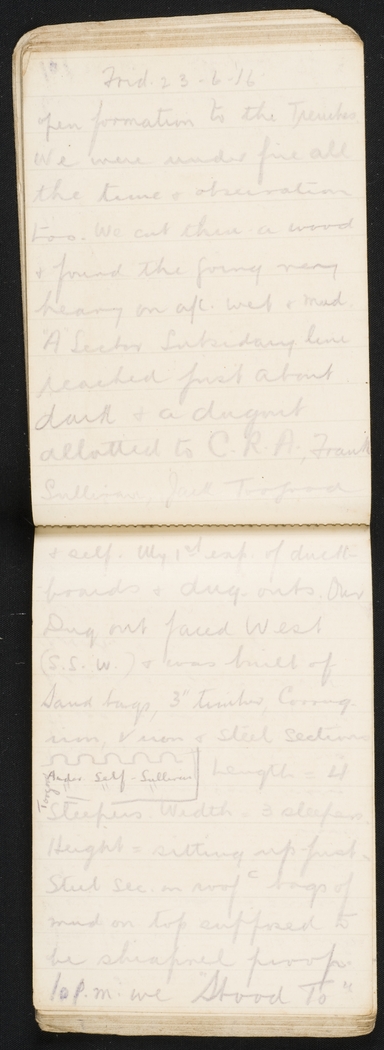 Frid. 23-6-16
open formation to the Trenches.
We were under fire all
the time & observation
too. We cut thru a wood
& found the going very
heavy on a/c. wet & mud.
"A Sector Subsidiary line
reached just about
dark & a dugout
allotted to C.R.A., Frank
Sullivan, Jack
& self. My 1st exp. of duck-
boards & dug-outs. Our
Dug out faced West
(S.S.W.) & was built of
Sand bags, 3" timber, Corrug.
iron, & iron & steel sections
Self - Sullivan
Length = 4
Sleepers Width = 3 sleepers.
Height = sitting up just.
Steel sec. on roof c bags of
mud on top supposed to
be shrapnel proof.
10 P.m. we "Stood To"